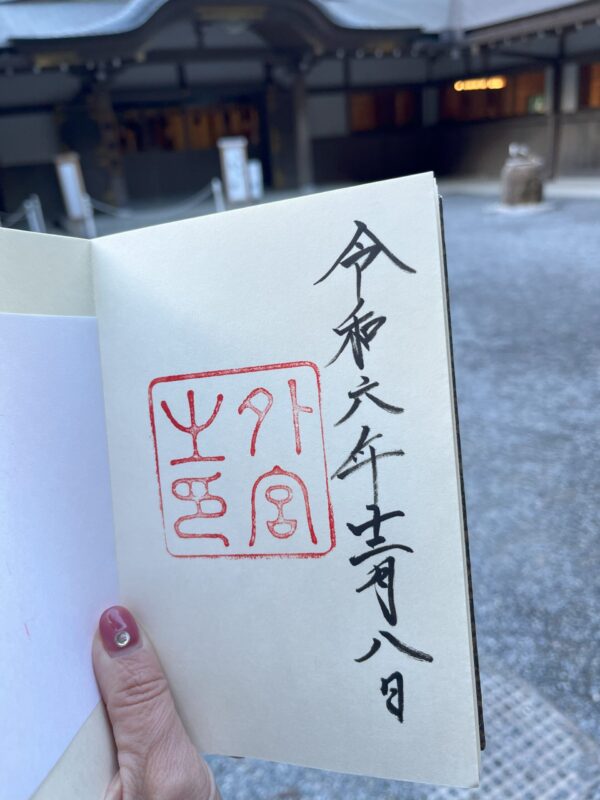 令和六年十二月八日
外宮
之印